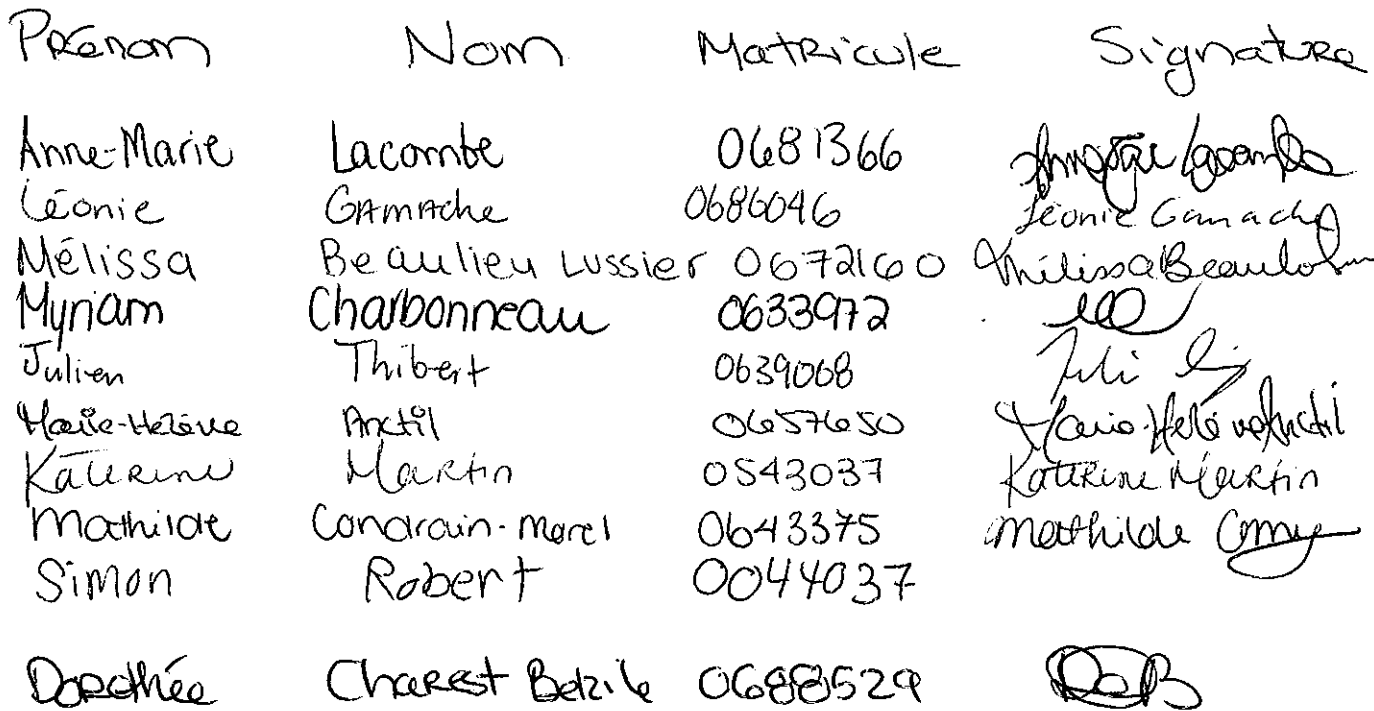 Prénom Nom Matricule Signature
Anne-Marie Lacombe 0681366
Léonie Gamache 0686046 Léonie Gamache
Mélissa Beaulieu Lussier 0672160 Mélissa
Myriam Charbonneau 0633972
Julien Thibert 0639068
Marie-Hélène Anctil 0657650 Marie-Hélène Anctil
Katerine Martin 0543037 Katerine Martin
Mathilde Condrain-Morel 0643375 Mathilde
Simon Robert 0044037
Dorothée Charest Belzile 0688529